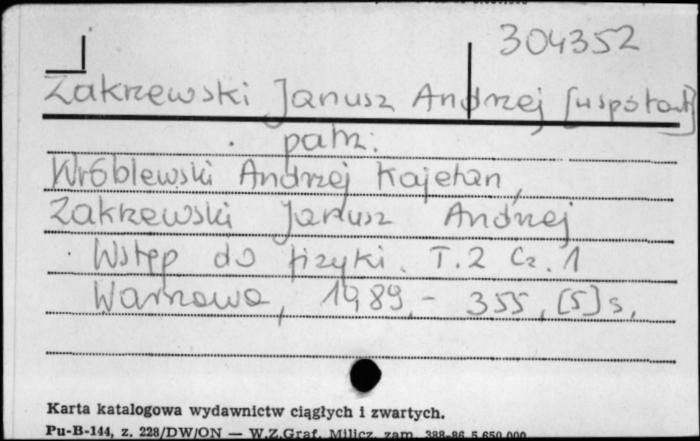 304352
Zakrzewski Janusz Andrzej [współaut]
patrz:
Wróblewski Andrzej Kajetan,
Zakrzewski Janusz Andrzej
Wstęp do fizyki. T.2 Cz. 1
Warszawa, 1989.- 355, [5] s.
Karta katalogowa wydawnictw ciągłych i zwartych.
Pu-B-144, z. 228/DW/ON — W.Z.Graf. Milicz, zam. 388-86 5.650.000